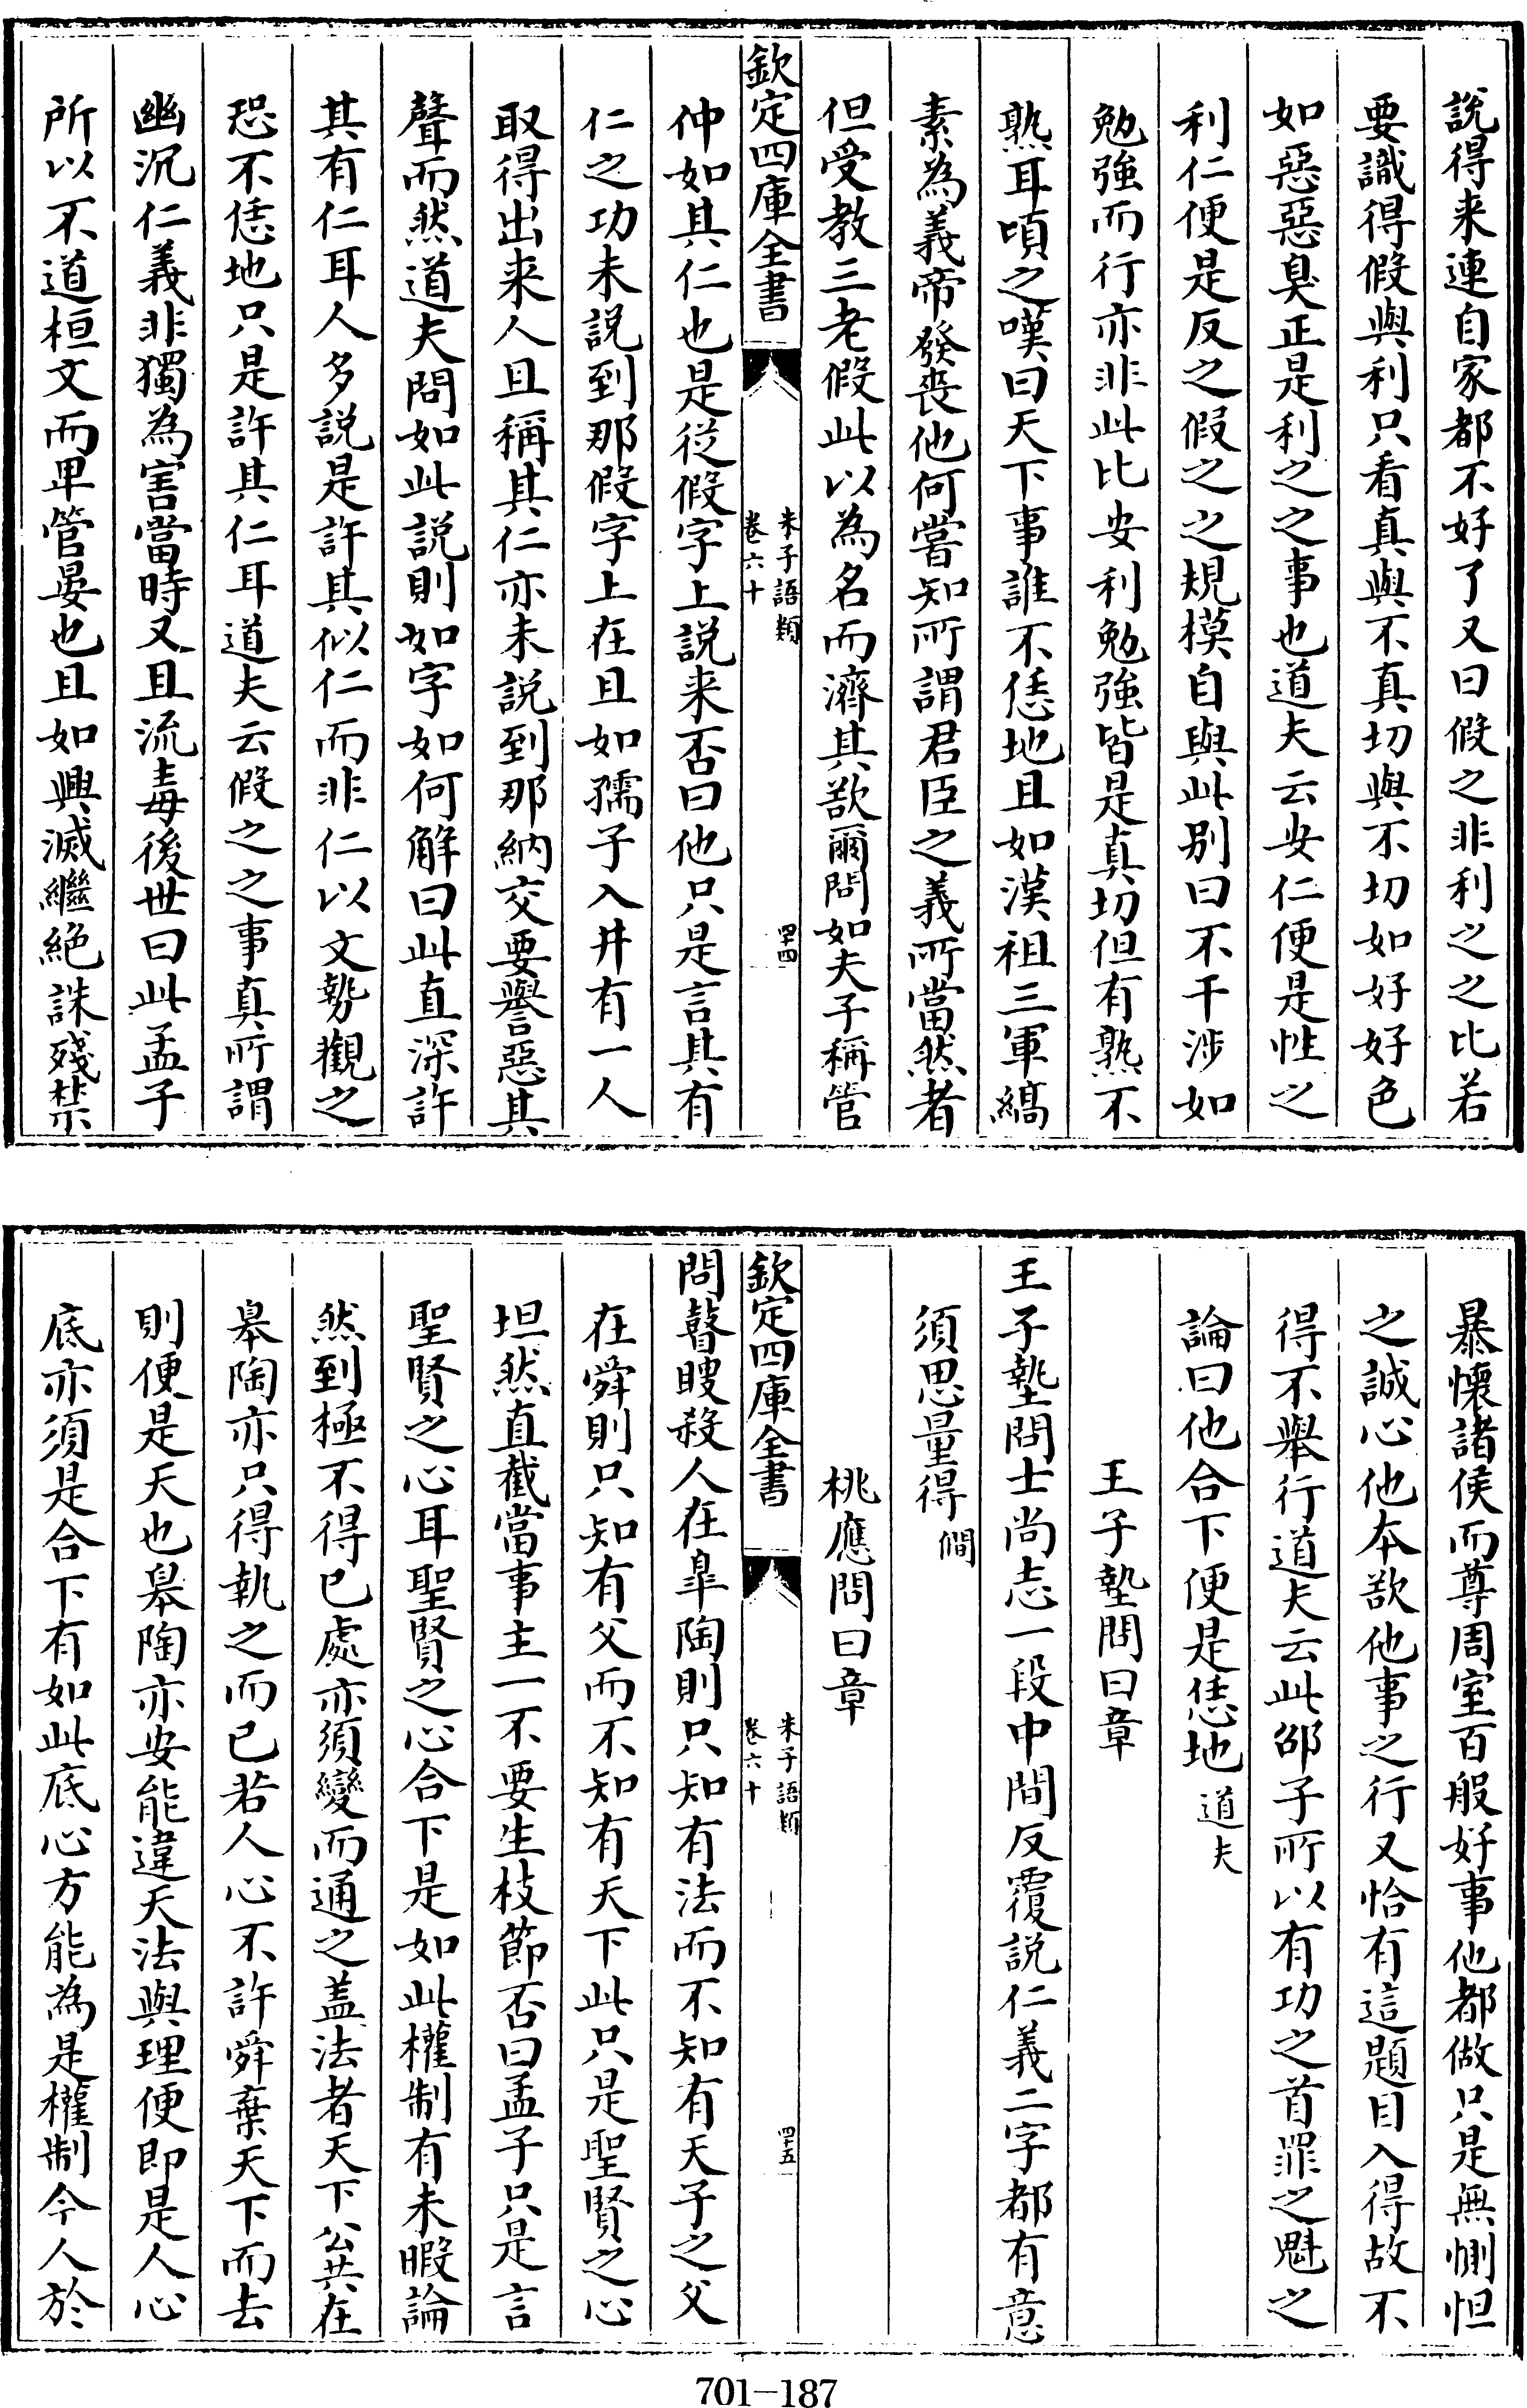 說得来連自家都不好了又曰假之非利之之比若
要識得假與利只看真與不真切與不切如好好色
如惡惡臭正是利之之事也道夫云安仁便是性之
利仁便是反之假之之規模自與此别曰不干涉如
勉強而行亦非此比安利勉強皆是真切但有熟不
熟耳頃之嘆曰天下事誰不恁地且如漢祖三軍縞
素為義帝發丧他何嘗知所謂君臣之義所當然者
但受教三老假此以為名而濟其欲爾問如夫子稱管
欽定四庫全書
朱子語類
卷六十
四十四
仲如其仁也是從假字上說来否曰他只是言其有
仁之功未說到那假字上在且如孺子入井有一人
取得出来人且稱其仁亦未說到那納交要譽惡其
聲而然道夫問如此說則如字如何解曰此直深許
其有仁耳人多說是許其似仁而非仁以文勢觀之
恐不恁地只是許其仁耳道夫云假之之事真所謂
幽沉仁義非獨為害當時又且流毒後世曰此孟子
所以不道桓文而卑管晏也且如興滅繼絕誅殘禁
暴懷諸侯而尊周室百般好事他都做只是無惻怛
之誠心他本欲他事之行又恰有這題目入得故不
得不舉行道夫云此邵子所以有功之首罪之魁之
論曰他合下便是恁地道夫
王子墊問曰章
王子墊問士尚志一段中間反覆説仁義二字都有意
須思量得僩
桃應問曰章
欽定四庫全書
朱子語類
卷六十
四十五
問瞽瞍殺人在臯陶則只知有法而不知有天子之父
在舜則只知有父而不知有天下此只是聖賢之心
坦然直截當事主一不要生枝節否曰孟子只是言
聖賢之心耳聖賢之心合下是如此權制有未暇論
然到極不得已處亦須變而通之盖法者天下公共在
皋陶亦只得執之而已若人心不許舜棄天下而去
則便是天也皋陶亦安能違天法與理便即是人心
底亦須是合下有如此底心方能為是權制今人於
701-187